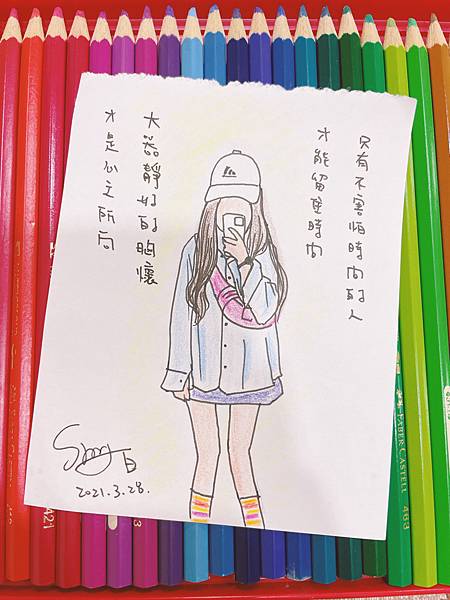 只有不害怕時間的人
才能留時間
大器靜如的胸懷
才是心之所向
白
2021.3.28.
FABER-CASTELL 463
421